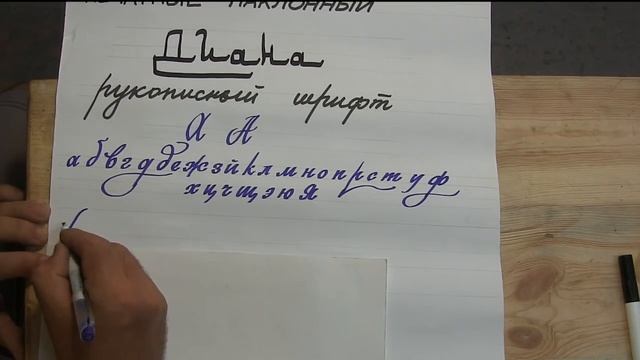 НАКЛОННЫЙ
Диана
рукописный шрифт
А А
а б в г д д е ж з й к л м н о п р с т у ф
х ц ч щ э ю я